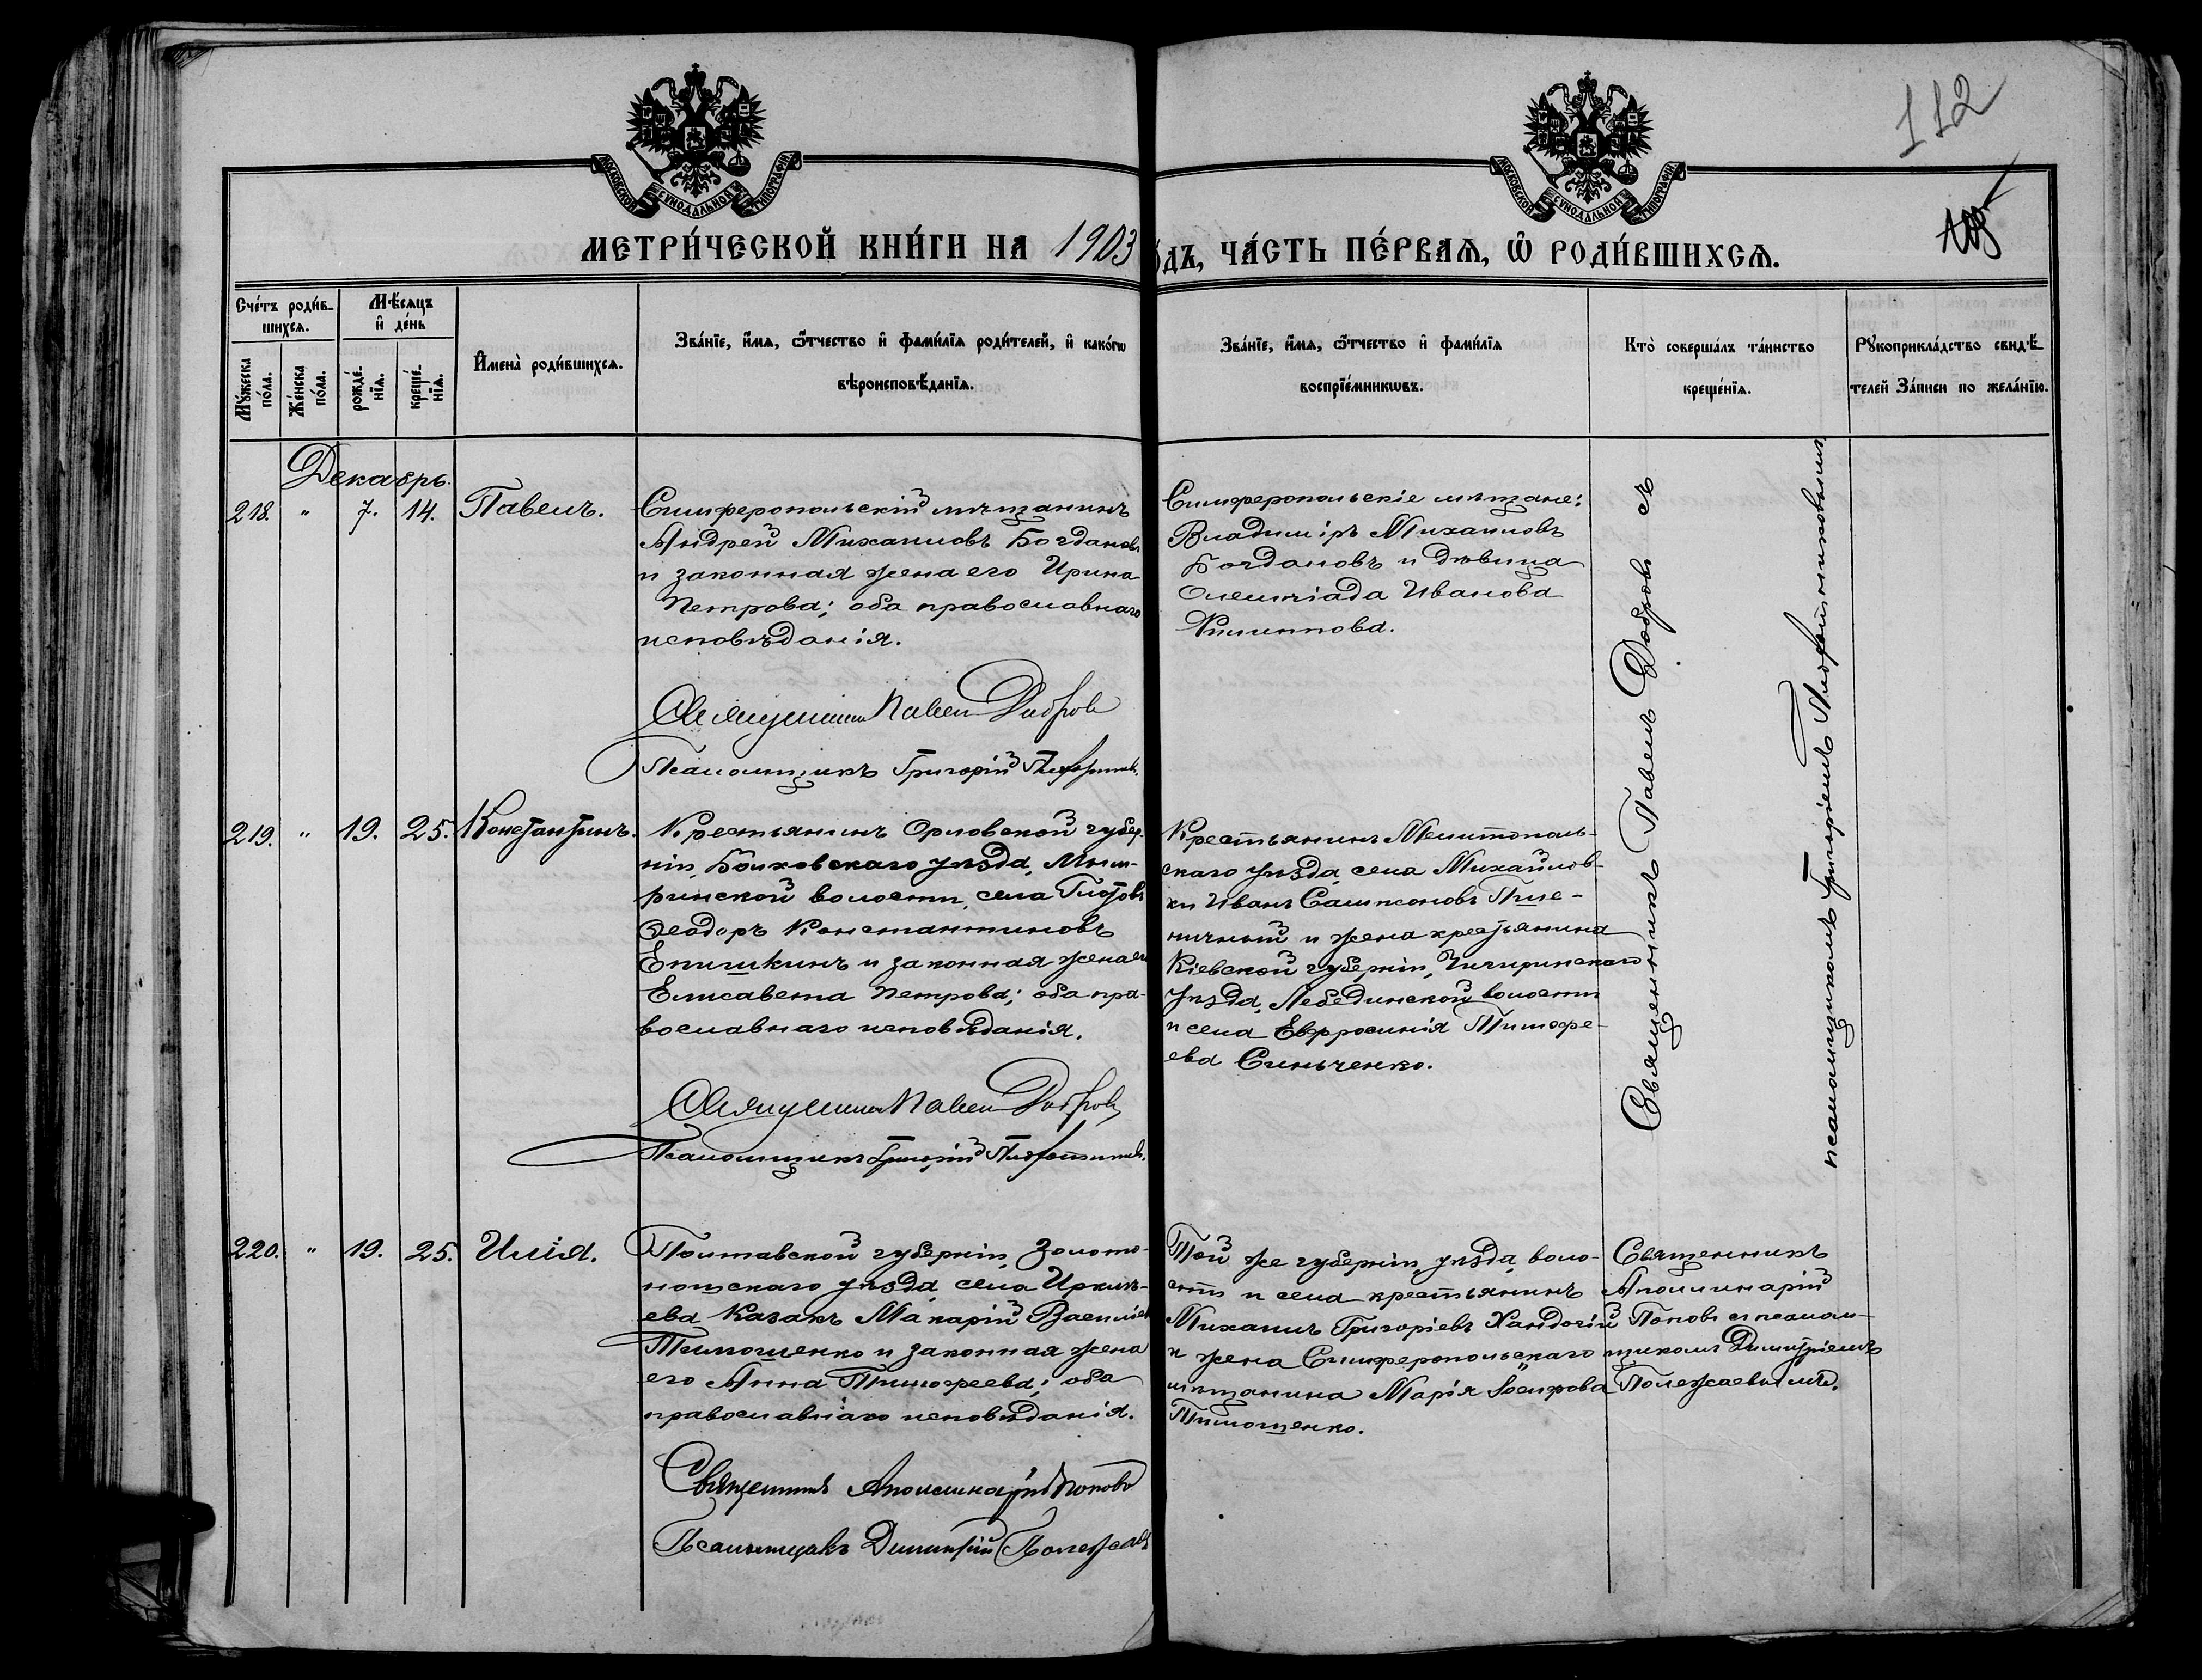 112
МОСКОВСКОЙ СУНОДАЛЬНОЙ ТИПОГРАФІИ
МОСКОВСКОЙ СУНОДАЛЬНОЙ ТИПОГРАФІИ
МЕТРИ́ЧЕСКОЙ КНИ́ГИ НА 1903
ѻ́дъ, ЧА́СТЬ ПЕ́РВАѦ, Ѡ҆ РОДИ́ВШИХСѦ.
Сче́тъ роди́в-
шихсѧ.
Мѣ́сѧцъ
и҆ де́нь
Мꙋ́жеска
по́ла.
Же́нска
по́ла.
рожде́-
нїѧ.
креще́-
нїѧ.
И҆мена̀ роди́вшихсѧ.
Зва́нїе, и҆́мѧ, ѻ҆́тчество и҆ фами́лїѧ роди́телей, и҆ како́гѡ
вѣроисповѣ́данїѧ.
Зва́нїе, и҆́мѧ, ѻ҆́тчество и҆ фами́лїѧ
воспрїе́мникѡвъ.
Кто̀ соверша́лъ та́инство
креще́нїѧ.
Рꙋкоприкла́дство свидѣ́-
телей За́писи по жела́нїю.
Декабрь.
218. " 7. 14. Павелъ.
Симферопольскій мѣщанинъ
Андрей Михаиловъ Богдановъ
и законная жена его Ирина
Петрова; оба православнаго
исповѣданія.
Священникъ Павелъ Добровъ
Псаломщикъ Григорій
Симферопольскіе мѣщане:
Владиміръ Михаиловъ
Богдановъ и дѣвица
Олимпіада Иванова
Филиппова.
219. " 19. 25. Константинъ.
Крестьянинъ Орловской губер-
ніи, Болховскаго уѣзда, Мым-
ринской волости, села Глотовъ
Ѳеодоръ Константиновъ
Епишкинъ и законная жена его
Елисавета Петрова; оба пра-
вославнаго исповѣданія.
Священникъ Павелъ Добровъ
Псаломщикъ Григорій
Крестьянинъ Мелитополь-
скаго уѣзда, села Михайлов-
ки Иванъ Сампсоновъ Пше-
ничный и жена крестьянина
Кіевской губерніи, Чигиринскаго
уѣзда, Лебединской волости
и села Евфросинія Тимофе-
ева Синьченко.
Священникъ Павелъ Добровъ съ
псаломщикомъ Григоріемъ
220. " 19. 25. Илія.
Полтавской губерніи, Золото-
ношскаго уѣзда, села Иркиѣ-
ева казакъ Макарій Васильевъ
Тимошенко и законная жена
его Анна Тимофеева; оба
православнаго исповѣданія.
Священникъ Аполлинарій Поповъ
Псаломщикъ Димитрій Полежаевъ
Той же губерніи, уѣзда, воло-
сти и села крестьянинъ
Михаилъ Григоріевъ Хандогій
и жена Симферопольскаго
мѣщанина Марія Іосифова
Тимошенко.
Священникъ
Аполлинарій
Поповъ съ псалом-
щикомъ Димитріемъ
Полежаевымъ.